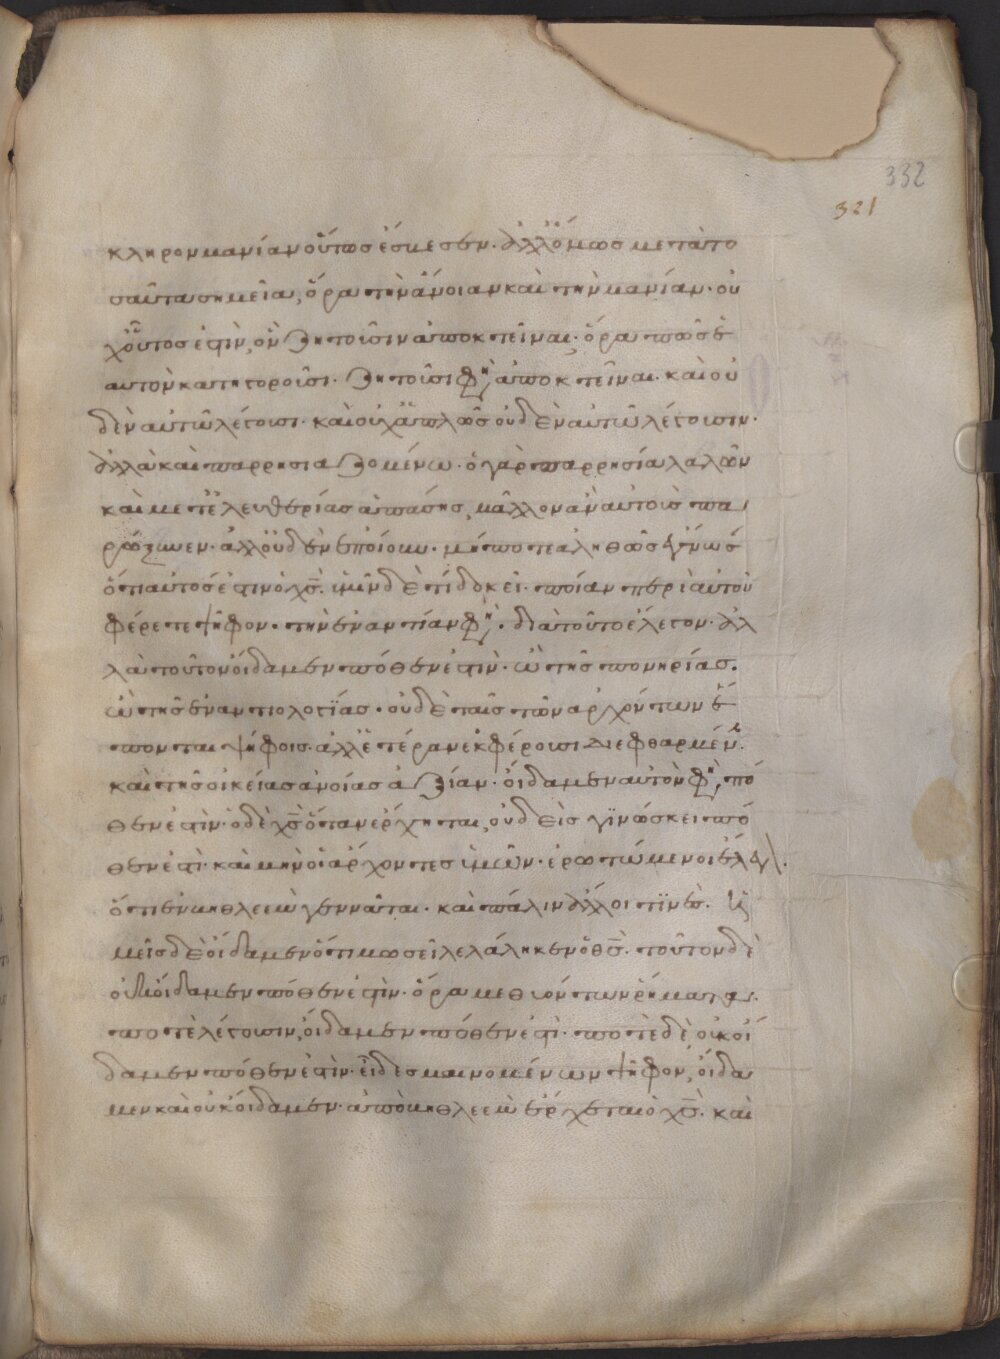 332
321
κληρον μανίαν οὕτως ἔσβεσεν· ἀλλ' ὅμως μετὰ το
σαῦτα σημεῖα, ὅρα τὴν ἄνοιαν καὶ τὴν μανίαν· οὐ
χ οὗτος ἐστὶν, ὃν ζητοῦσιν ἀποκτεῖναι; ὅρα πῶς ἑ
αυτῶν κατηγοροῦσι· ζητοῦσι φη, ἀποκτεῖναι· καὶ οὐ
δὲν αὐτῶ λέγουσι· καὶ οὐχ ἁπλῶς οὐδὲν αὐτῶ λέγουσιν·
ἀλλὰ καὶ παρρησιαζομένω· ὁ γὰρ παρρησία λαλῶν
καὶ μετ' ἐλευθερίας ἁπάσης, μᾶλλον ἂν αὐτοὺς πα
ρώξυνεν· ἀλλ' οὐδὲν ἐποίουν· μήποτε ἀληθῶς ἔγνωσ
ὅτι αὐτός ἐστιν ὁ χς· ὑμῖν δὲ τί δοκεῖ· ποίαν περὶ αὐτοῦ
φέρετε ψῆφον· τὴν ἐναντίαν φη· διὰ τοῦτο ἔλεγον· ἀλ
λὰ τοῦτον οἴδαμεν πόθεν ἐστὶν· ὢ τῆς πονηρίας·
ὢ τῆς ἐναντιολογίας· οὐδὲ ταῖς τῶν ἀρχόντων ἕ
πονται ψήφοις· ἀλλ' ἑτέραν ἐκφέρουσι διεφθαρμένην·
καὶ τῆς οἰκείας ἀνοίας ἀξίαν· οἴδαμεν αὐτὸν φη, πό
θεν ἐστὶν· ὁ δὲ χς ὅταν ἔρχηται, οὐδεὶς γινώσκει πό
θεν ἐστί· καὶ μὴν οἱ ἄρχοντες ὑμῶν· ἐρωτώμενοι ἔλεγ·
ὅτι ἐν βηθλεεμ γεννᾶται· καὶ πάλιν ἄλλοι τινὲς· ἡ
μεῖς δὲ οἴδαμεν ὅτι μωσεῖ λελάληκεν ὁ θς· τοῦτον δὲ
οὐκ οἴδαμεν πόθεν ἐστὶν· ὅρα μεθυόντων ῥήματα·
ποτὲ λέγουσιν, οἴδαμεν πόθεν ἐστὶ· ποτὲ δὲ οὐκ οἴ
δαμεν πόθεν ἐστὶν· εἶδες μαινομένων ψῆφον, οἴδα
μεν καὶ οὐκ οἴδαμεν· ἀπὸ βηθλεεμ ἔρχεται ὁ χς· καὶ